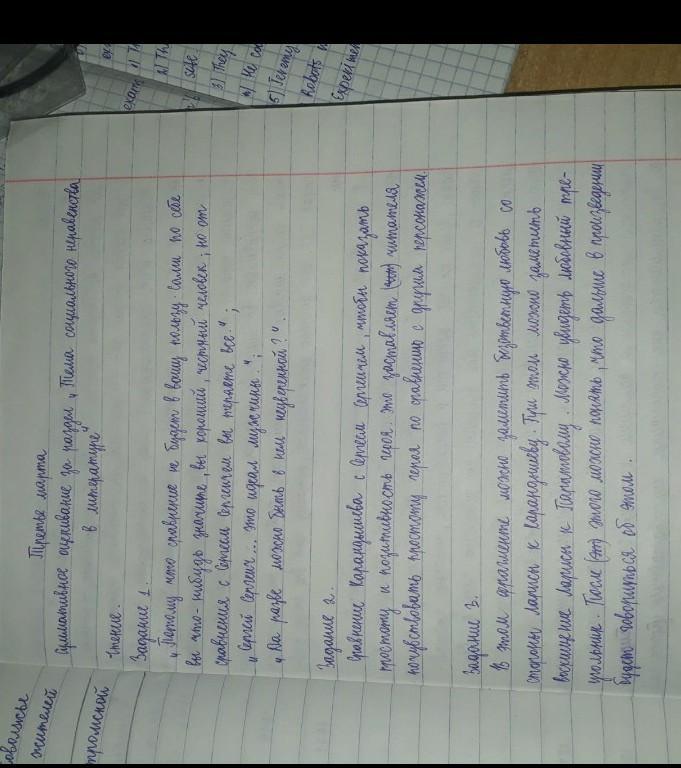 Третье марта
Суммативное оценивание за раздел „Тема социального неравенства
в литературе"
Чтение.
Задание 1.
„Потому что сравнение не будет в вашу пользу. Сами по себе
вы что-нибудь значите, вы хороший, честный человек; но от
сравнения с Сергеем Сергеичем вы теряете все.";
„Сергей Сергеич... это идеал мужчины.";
„Да разве можно быть в нем неуверенной?".
Задание 2.
Сравнение Карандышева с Сергеем Сергеичем, чтобы показать
простоту и позитивность героя. Это заставляет читателя
почувствовать простоту героя по сравнению с другим персонажем.
Задание 3.
В этом фрагменте можно заметить безответную любовь со
стороны Ларисы к Карандышеву. При этом можно заметить
восхищение Ларисы к Паратовому. Можно увидеть любовный тре-
угольник. После (эт) этого можно понять, что дальше в произведении
будет говориться об этом.
овольные
жителей
тромской
exam
1) Th
2) Th
safe.
3) They
4) He
5) Jeremy
Robots
Experimen